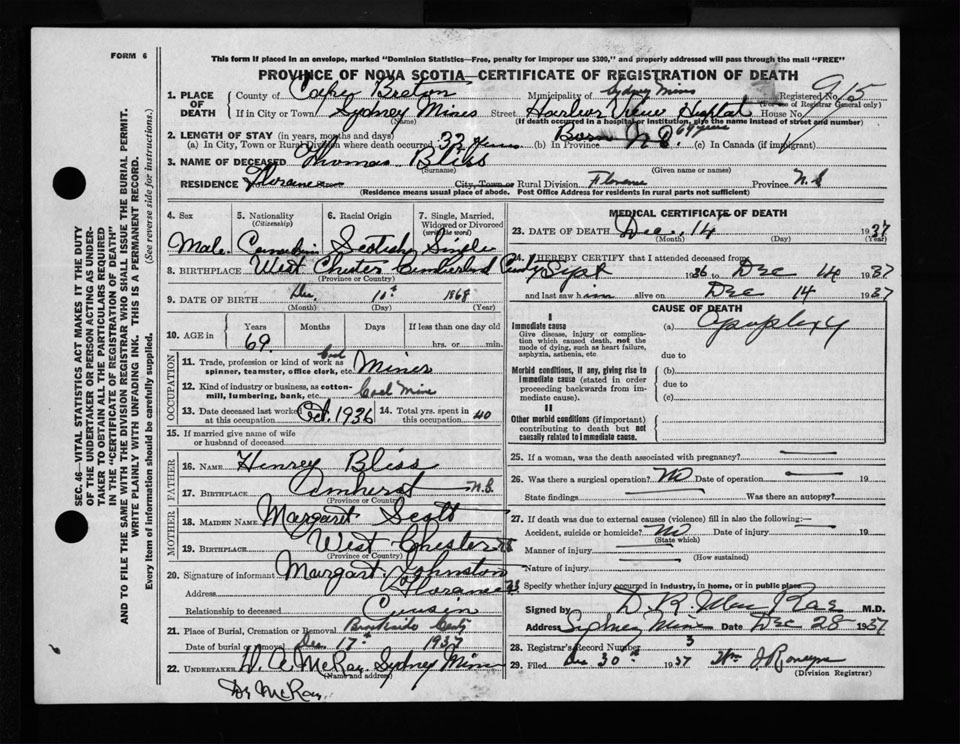 FORM 6
This form if placed in an envelope, marked "Dominion Statistics—Free, penalty for improper use $300," and properly addressed will pass through the mail "FREE"
PROVINCE OF NOVA SCOTIA—CERTIFICATE OF REGISTRATION OF DEATH
SEC. 46—VITAL STATISTICS ACT MAKES IT THE DUTY
OF THE UNDERTAKER OR PERSON ACTING AS UNDER-
TAKER TO OBTAIN ALL THE PARTICULARS REQUIRED
IN THE "CERTIFICATE OF REGISTRATION OF DEATH"
AND TO FILE THE SAME WITH THE DIVISION REGISTRAR WHO SHALL ISSUE THE BURIAL PERMIT.
WRITE PLAINLY WITH UNFADING INK. THIS IS A PERMANENT RECORD.
Every item of information should be carefully supplied. (See reverse side for instructions.)
1. PLACE OF DEATH
County of Cape Breton Municipality of Sydney Mines Registered No. 915
(For use of Registrar General only)
If in City or Town Sydney Mines Street Harbor View Hospital House No.
(If death occurred in a hospital or institution, give the name instead of street and number)
2. LENGTH OF STAY (in years, months and days)
(a) In City, Town or Rural Division where death occurred 32 (b) In Province Born N.S. 69 years (c) In Canada (if immigrant)
3. NAME OF DECEASED Thomas Bliss
(Surname) (Given name or names)
RESIDENCE Florence City, Town or Rural Division Florence Province N.S
(Residence means usual place of abode. Post Office Address for residents in rural parts not sufficient)
4. Sex 5. Nationality (Citizenship) 6. Racial Origin 7. Single, Married, Widowed or Divorced (write the word)
Male Canadian Scotish Single
8. BIRTHPLACE West Chester Cumberland County
(Province or Country)
9. DATE OF BIRTH Dec. 10th 1868
(Month) (Day) (Year)
10. AGE in Years Months Days If less than one day old
69 hrs. or min.
OCCUPATION
11. Trade, profession or kind of work as spinner, teamster, office clerk, etc. Coal Miner
12. Kind of industry or business, as cotton-mill, lumbering, bank, etc. Coal Mine
13. Date deceased last worked at this occupation Oct. 1936 14. Total yrs. spent in this occupation 40
15. If married give name of wife or husband of deceased
FATHER
16. NAME Henrey Bliss
17. BIRTHPLACE Amherst N.S.
(Province or Country)
MOTHER
18. MAIDEN NAME Margaret Scott
19. BIRTHPLACE West Chester
(Province or Country)
20. Signature of informant Margart Johnston
Address Florence
Relationship to deceased Cousin
21. Place of Burial, Cremation or Removal Brookside Cemty
Date of burial or removal Dec. 17th 1937
22. UNDERTAKER W. A. McRay Sydney Mines
(Name and address)
Dr McRay
MEDICAL CERTIFICATE OF DEATH
23. DATE OF DEATH Dec. 14 1937
(Month) (Day) (Year)
I HEREBY CERTIFY that I attended deceased from
Sept 1936 to Dec 14 1937
and last saw him alive on Dec 14 1937
CAUSE OF DEATH
I
Immediate cause (a) Apoplexy
Give disease, injury or complication which caused death, not the mode of dying, such as heart failure, asphyxia, asthenia, etc.
due to
Morbid conditions, if any, giving rise to immediate cause (stated in order proceeding backwards from immediate cause).
(b)
due to
(c)
II
Other morbid conditions (if important) contributing to death but not causally related to immediate cause.
25. If a woman, was the death associated with pregnancy?
26. Was there a surgical operation? No Date of operation 19
State findings Was there an autopsy?
27. If death was due to external causes (violence) fill in also the following:—
Accident, suicide or homicide? No Date of injury 19
(State which)
Manner of injury
(How sustained)
Nature of injury
Specify whether injury occurred in industry, in home, or in public place
Signed by D. R. MacRae M.D.
Address Sydney Mines Date Dec 28 1937
28. Registrar's Record Number 3
29. Filed Dec 30th 1937 Wm J.
(Division Registrar)